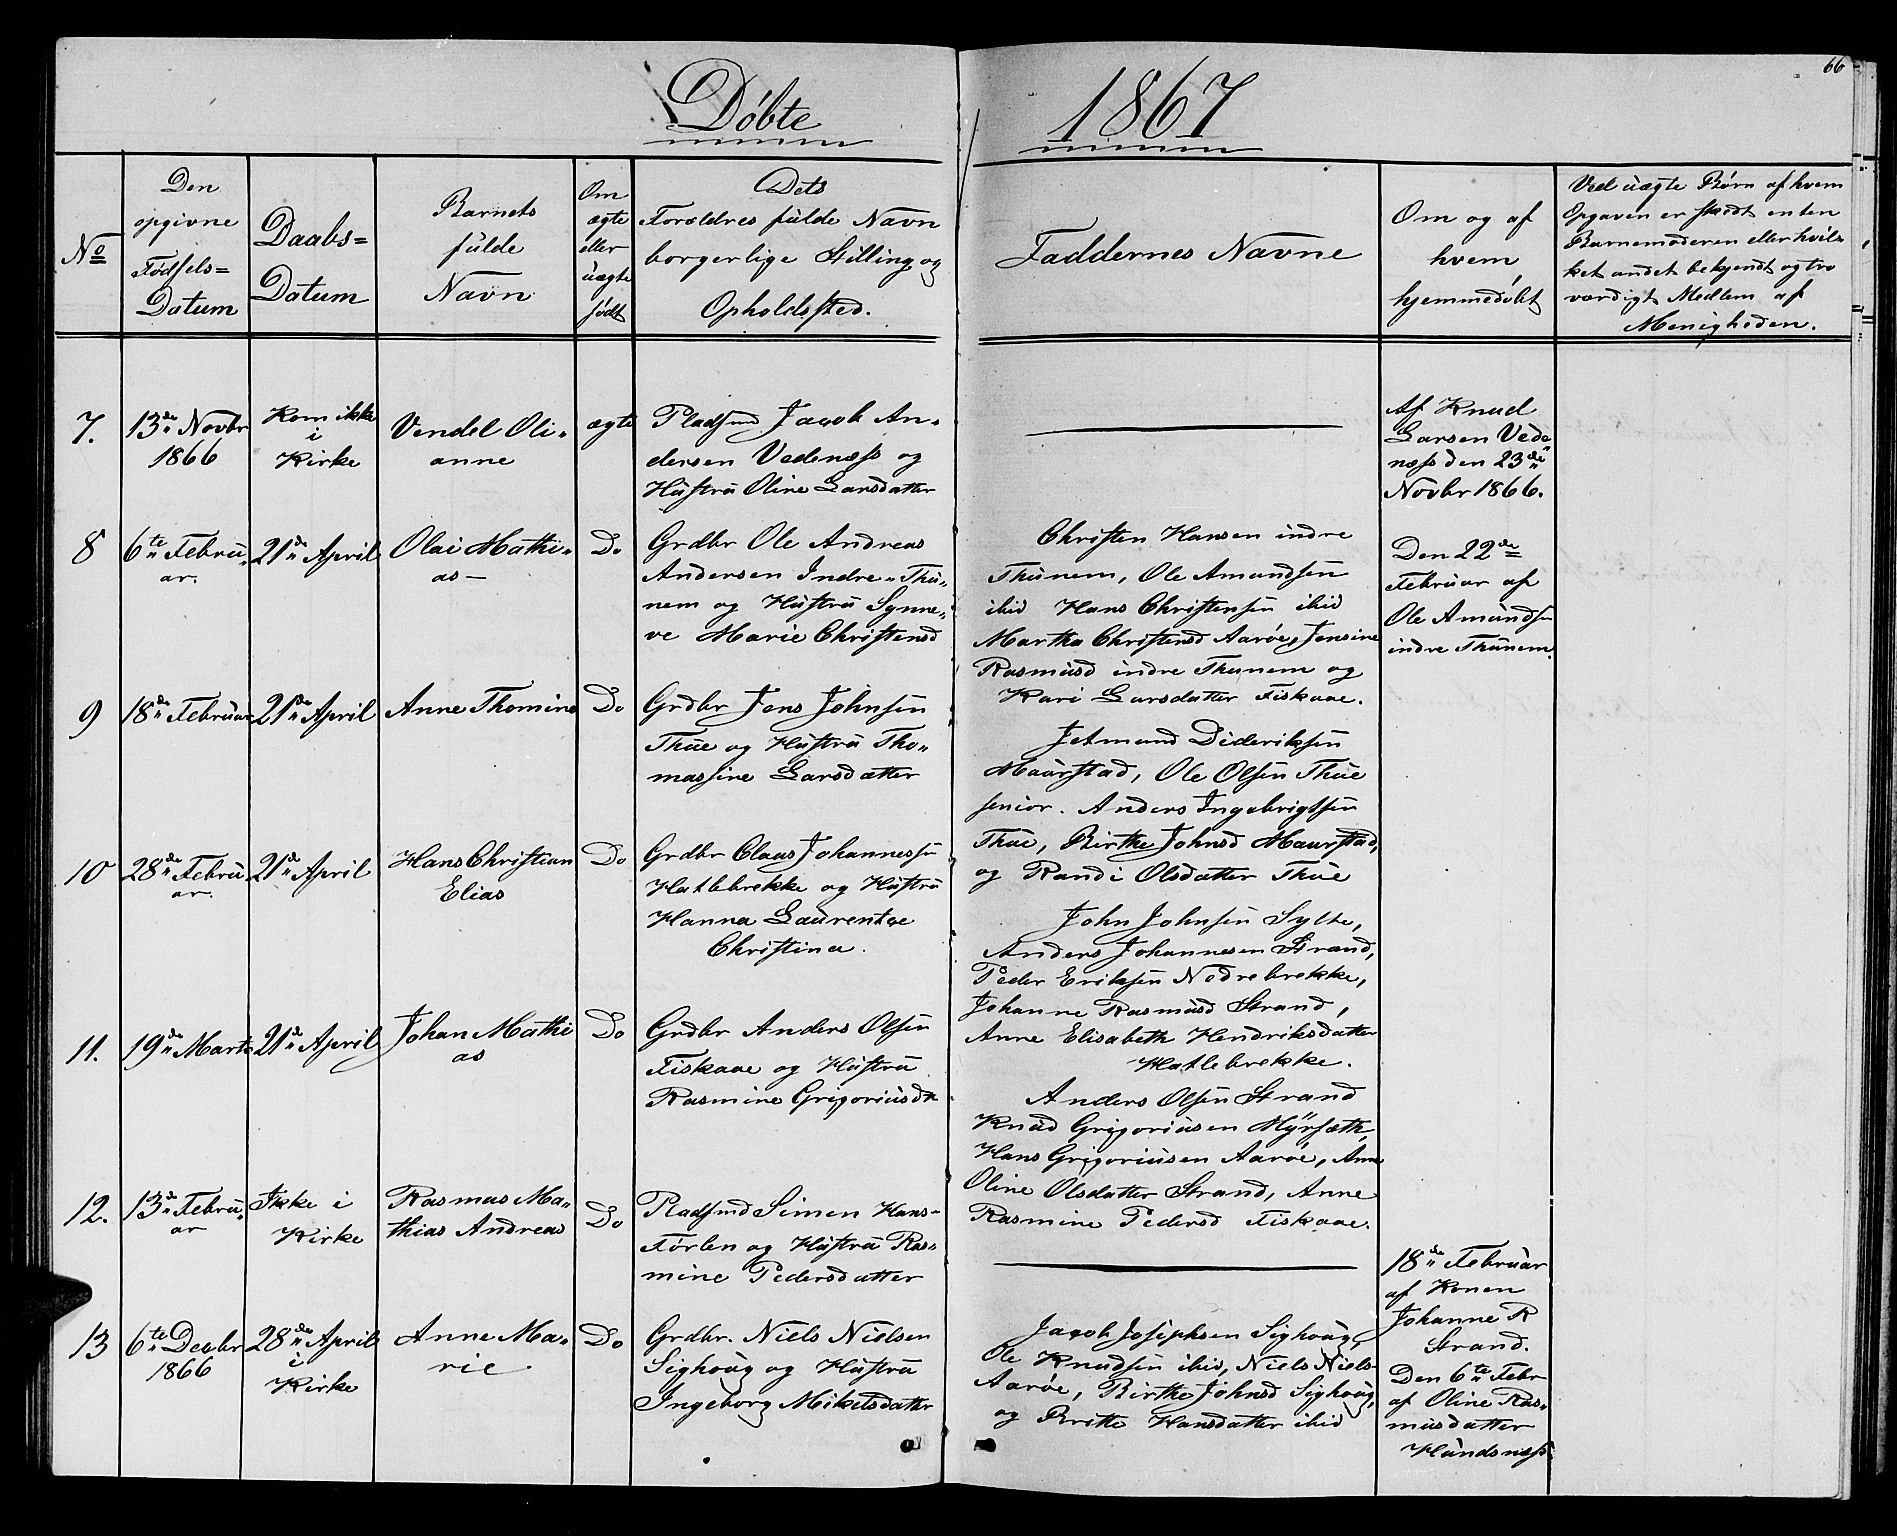 66
Døbte 1867
No
Den
opgivne
Fødsels=
Datum
Daabs=
Datum
Barnets
fulde
Navn
Om
ægte
eller
uægte
født
Dets
Forældres fulde Navn
borgerlige Stilling og
Opholdssted.
Faddernes Navne
Om og af
hvem
hjemmedøbt
Ved uægte Børn af hvem
Opgaven er skedt enten
Barnemoderen eller hvil=
ket andet bekjendt og tro
værdigt Medlem af
Menigheden.
7.
13de Novbr
1866
Kom ikke
i
Kirke
Vendel Oli=
anne
ægte
Pladsmd Jacob An=
dersen Vedenæss og
Hustru Oline Larsdatter
Af Knud
Larsen Vede
næss den 23de
Novbr 1866.
8
6te Febru
ar.
21de April
Olai Mathi=
as
Do
Grdbr Ole Andreas
Andersen Indre=Thu=
nem og Hustru Synne=
ve Marie Christensd
Christen Hansen indre
Thunem, Ole Amundsen
ibid Hans Christensen ibid
Martha Christensd Aarøe, Jensine
Rasmusd indre Thunem og
Kari Larsdatter Fiskaae.
Den 22de
Februar af
Ole Amundsen
indre Thunem.
9
18de Februar
21de April
Anne Thomine
Do
Grdbr Jens Johnsen
Thue og Hustru Tho=
massine Larsdatter
Jetmund Dideriksen
Maurstad, Ole Olsen Thue
senior. Anders Ingebrigtsen
Thue, Birthe Johnsd Maurstad,
og Randi Olsdatter Thue
10
28de Febru
ar.
21de April
Hans Christian
Elias
Do
Grdbr Claus Johannessen
Hatlebrekke og Hustru
Hanna Laurentae
Christina.
John Johnsen Sylte,
Anders Johannesen Strand,
Peder Eriksen Nedrebrekke,
Johanne Rasmusd Strand,
Anne Elisabeth Hendriksdatter
Hatlebrekke.
11.
19de Marts
21de April
Johan Mathi
as
Do
Grdbr Anders Olsen
Fiskaae og Hustru
Rasmine Grigoriusdr
Anders Olsen Strand
Knud Grigoriusen Myrsæth,
Hans Grigoriusen Aarøe, Ane
Oline Olsdatter Strand, Anne
Rasmine Pedersd Fiskaae.
12.
13de Febru
ar
Ikke i
Kirke
Rasmus Ma=
thias Andreas
Do
Pladsmd Simen Hans=
Førlen og Hustru Ras=
mine Pedersdatter
18de Februar
af Konen
Johanne R
Strand.
13
6te Decbr
1866
28de April
i
Kirke
Anne Ma=
rie
Do
Grdbr. Niels Nielsen
Sighoug og Hustru
Ingeborg Mikelsdatter
Jacob Josephsen Sighoug,
Ole Knudsen ibid, Niels Niels
Aarøe, Birthe Johnsd Sighoug,
og Britte Hansdatter ibid
Den 6te Febr
af Oline Ras=
musdatter
Hundsnæss